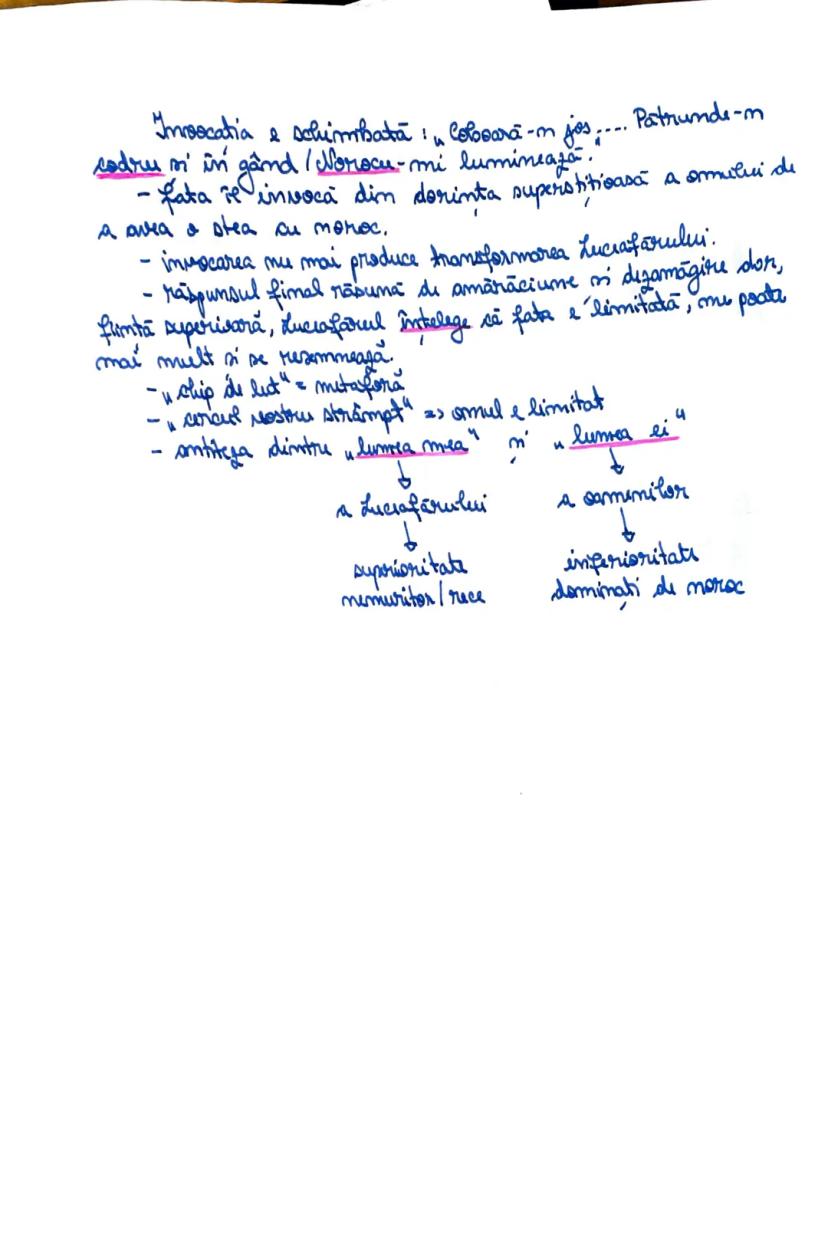 Invocația e schimbată: „Coboară-n jos,... Pătrunde-n
codru și în gând / Norocu-mi luminează."
- fata îl invocă din dorința superstițioasă a omului de
a avea o stea cu noroc.
- invocarea nu mai produce transformarea Luceafărului.
- răspunsul final răsună de amărăciune și dezamăgire dar,
ființă superioară, Luceafărul înțelege că fata e limitată, nu poate
mai mult și se resemnează.
- „chip de lut" = metaforă
- „cercul vostru strâmpt" => omul e limitat
- antiteza dintre „lumea mea" și „lumea ei"
a Luceafărului a oamenilor
superioritate inferioritate
nemuritor / rece dominați de noroc